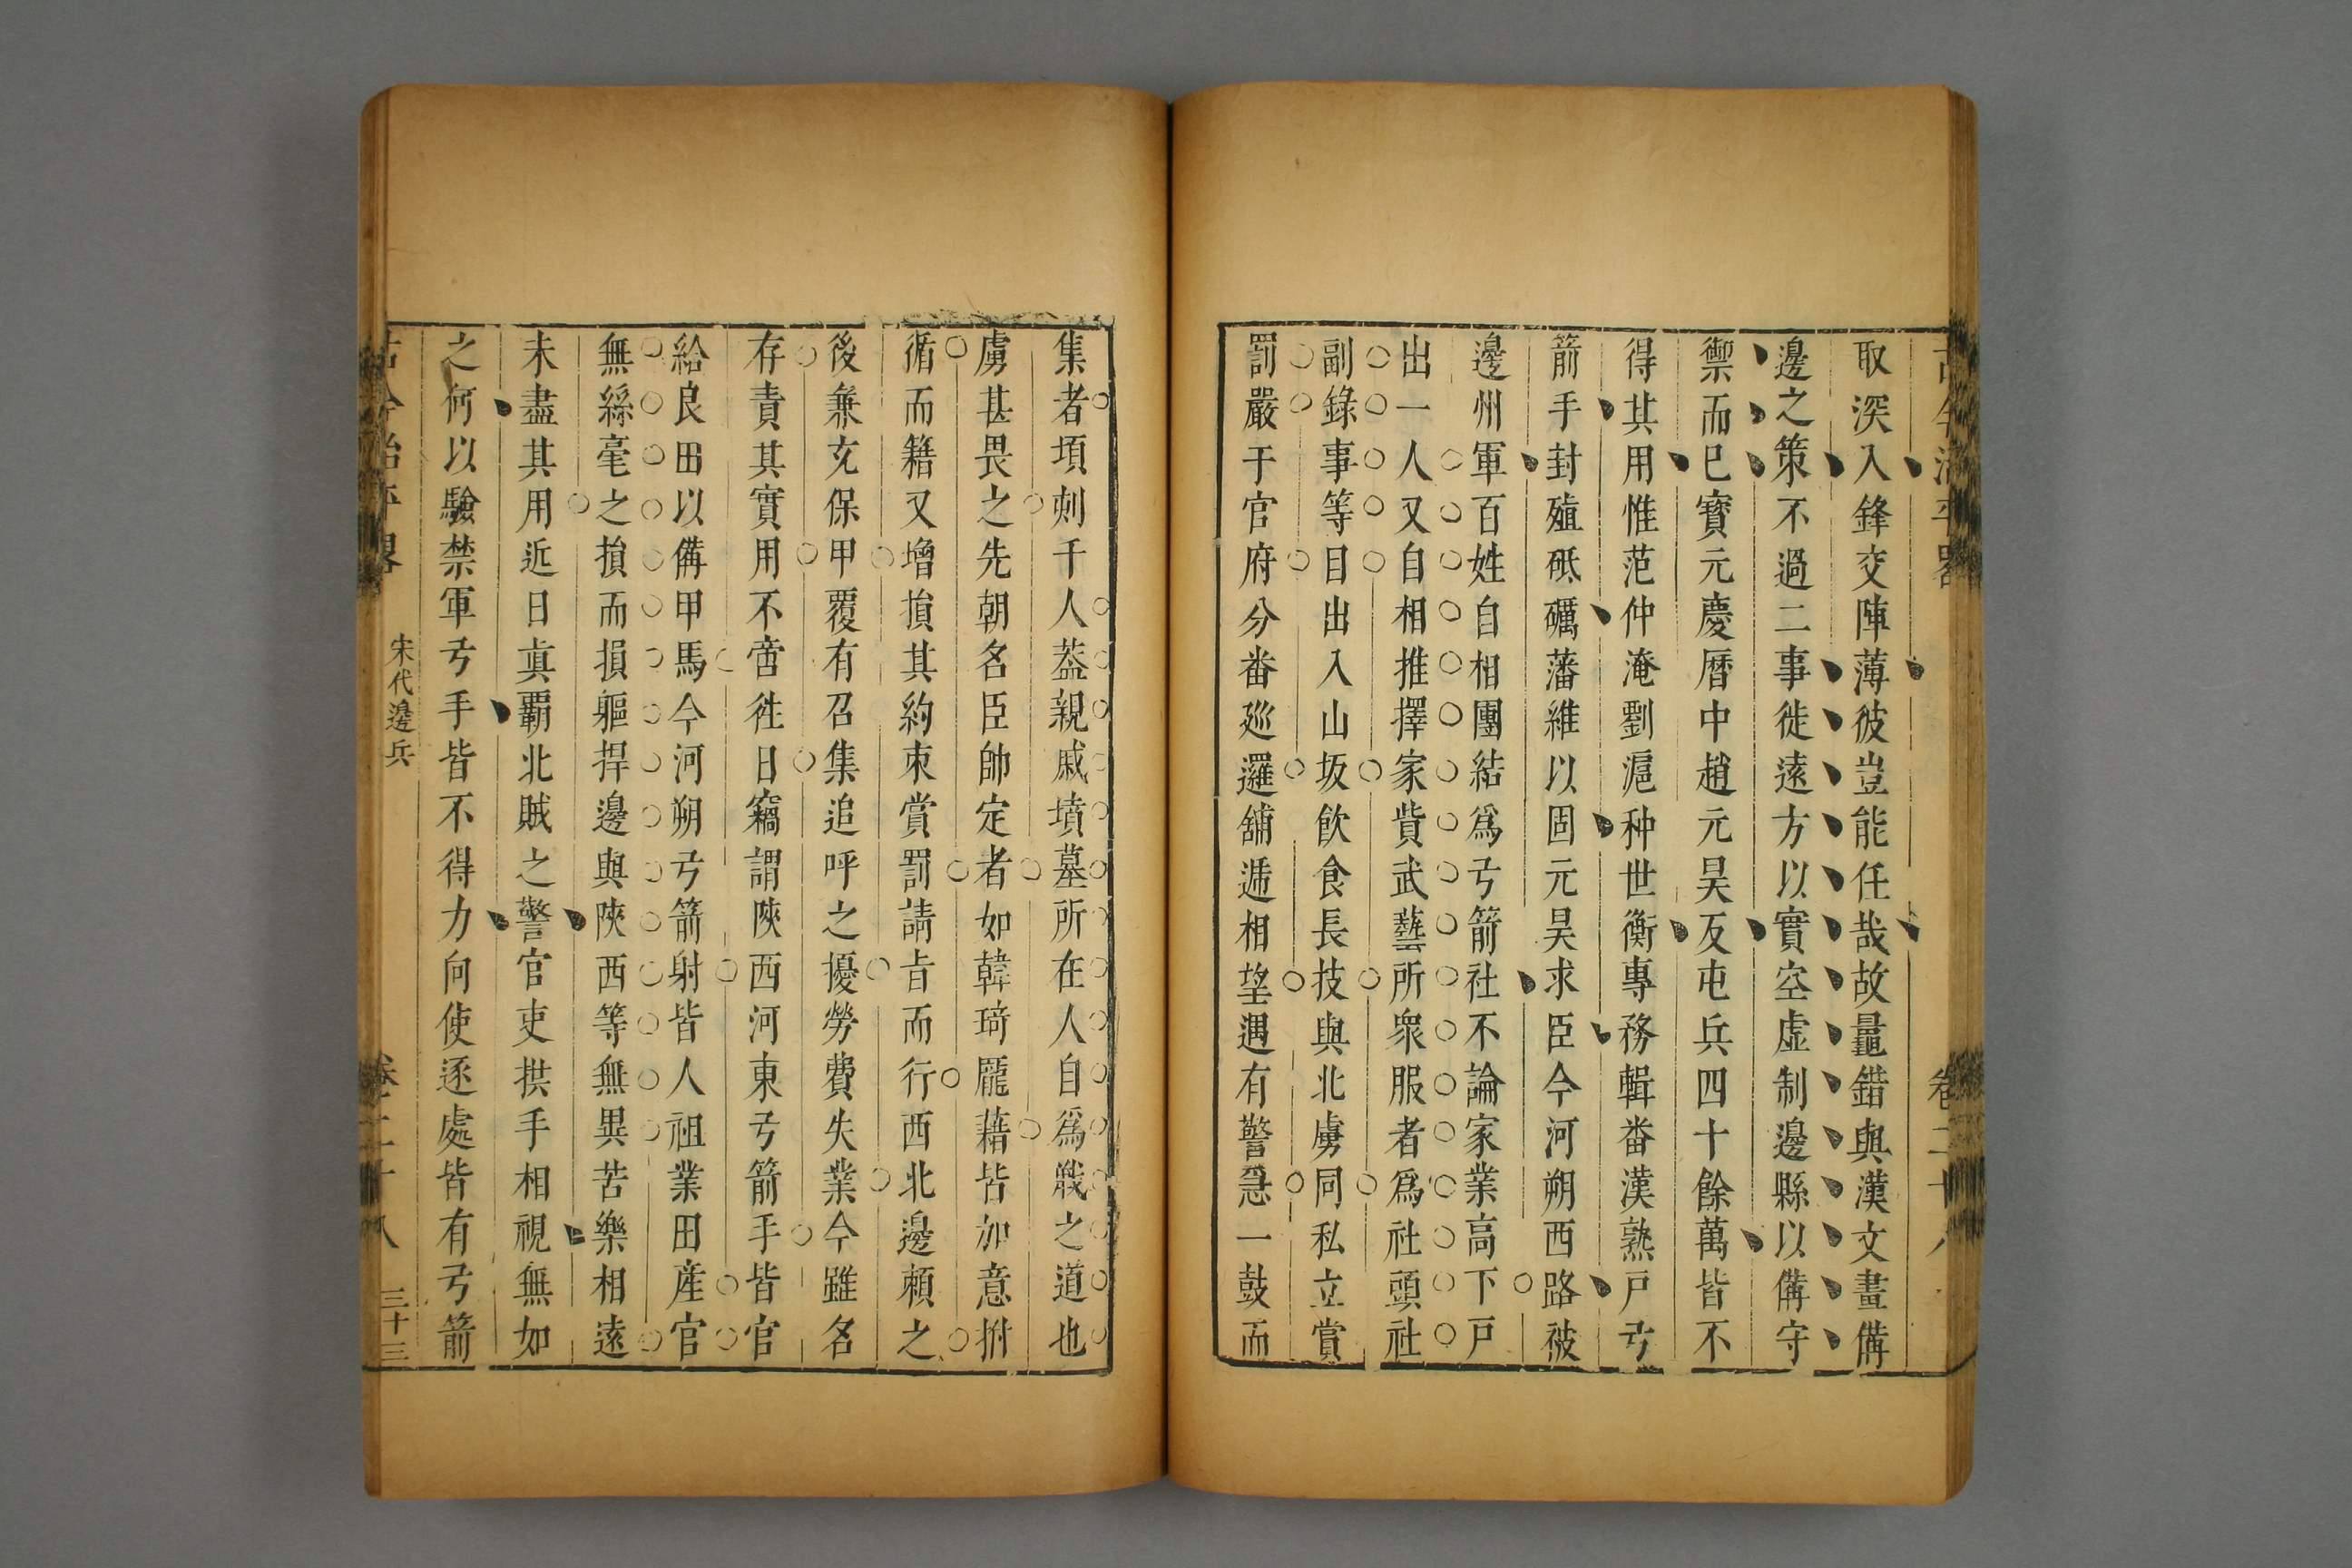 取深入鋒交陣薄彼豈能任哉故鼂錯與漢文畫備
邊之策不過二事徙遠方以實空虛制邊縣以備守
禦而已寶元慶曆中趙元昊反屯兵四十餘萬皆不
得其用惟范仲淹劉滬种世衡專務輯畨漢熟戸弓
箭手封殖砥礪藩維以固元昊求臣今河朔西路被
邊州軍百姓自相團結爲弓箭社不論家業高下戸
出一人又自相推擇家貲武藝所衆服者爲社頭社
副錄事等目出入山坂飲食長技與北虜同私立賞
罰嚴于官府分畨廵邏舖遞相望遇有警急一鼓而
集者項刺千人葢親戚墳墓所在人自爲戰之道也
虜甚畏之先朝名臣帥定者如韓琦龎藉皆加意拊
循而籍又增損其約束賞罰請旨而行西北邊頼之
後兼充保甲覆有召集追呼之擾勞費失業今雖名
存責其實用不啻徃日竊謂陝西河東弓箭手皆官
給良田以備甲馬今河朔弓箭射皆人祖業田産官
無絲毫之損而損軀捍邊與陝西等無異苦樂相遠
未盡其用近日眞覇北賊之警官吏拱手相視無如
之何以驗禁軍弓手皆不得力向使逐處皆有弓箭
宋代邊兵
卷二十八
三十三